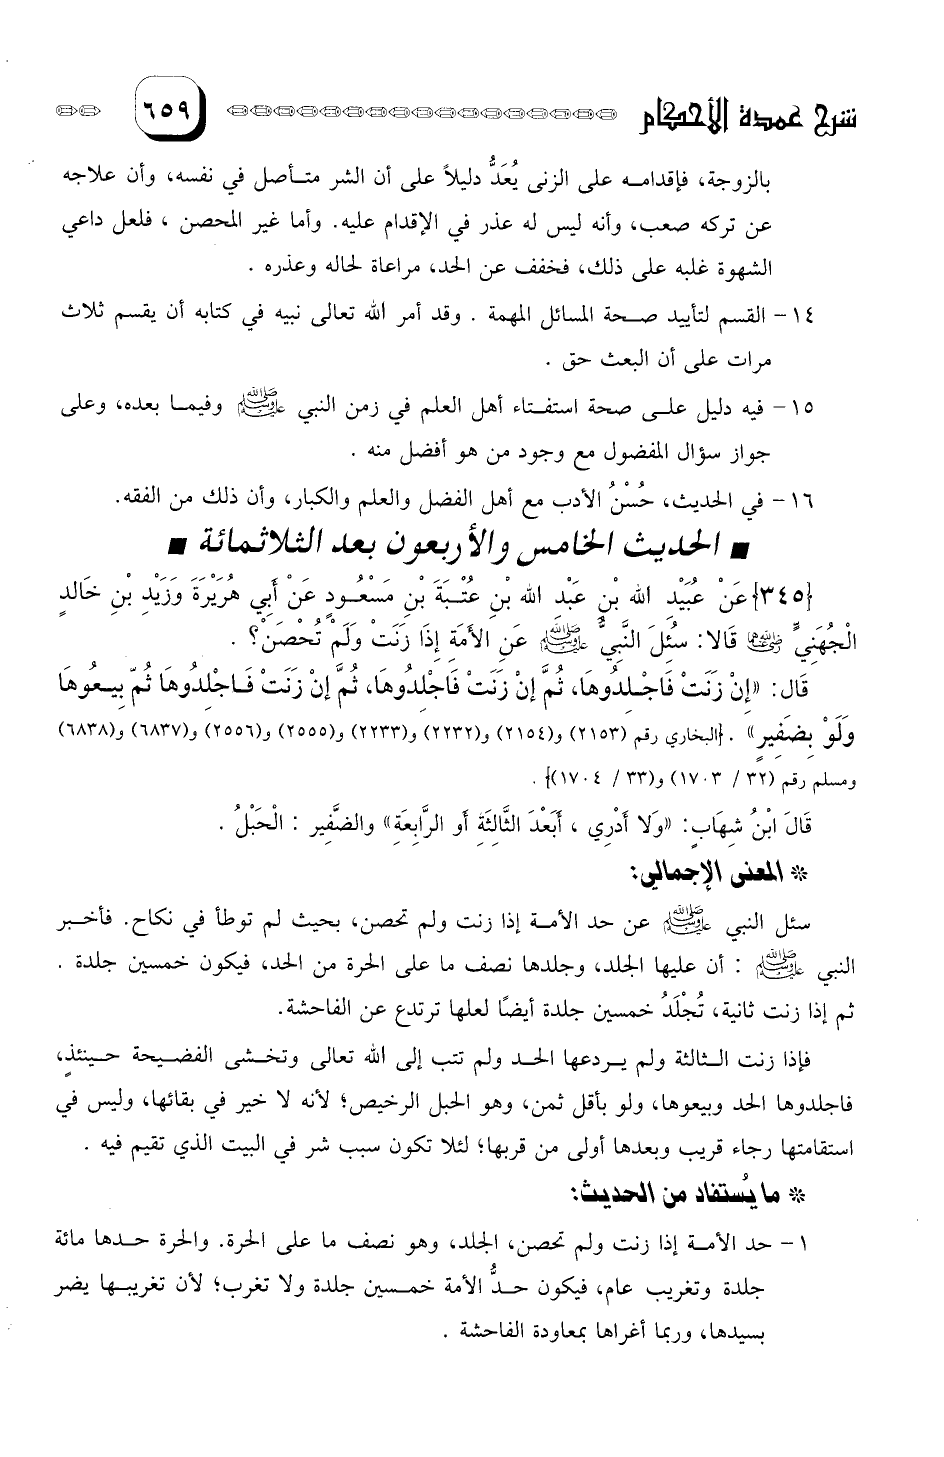 شرح عمدة الأحكام ٦٥٩
بالزوجة، فإقدامه على الزنى يُعَدُّ دليلاً على أن الشر متأصل في نفسه، وأن علاجه
عن تركه صعب، وأنه ليس له عذر في الإقدام عليه. وأما غير المحصن ، فلعل داعي
الشهوة غلبه على ذلك، فخفف عن الحد، مراعاة لحاله وعذره .
١٤- القسم لتأييد صحة المسائل المهمة . وقد أمر الله تعالى نبيه في كتابه أن يقسم ثلاث
مرات على أن البعث حق .
١٥- فيه دليل على صحة استفتاء أهل العلم في زمن النبي ﷺ وفيما بعده، وعلى
جواز سؤال المفضول مع وجود من هو أفضل منه .
١٦- في الحديث، حُسْنُ الأدب مع أهل الفضل والعلم والكبار، وأن ذلك من الفقه.
■ الحديث الخامس والأربعون بعد الثلاثمائة ■
{٣٤٥}عَنْ عُبَيْدِ الله بْنِ عَبْدِ الله بْنِ عُتْبَةَ بْنِ مَسْعُودٍ عَنْ أَبِي هُرَيْرَةَ وَزَيْدِ بْنِ خَالِدٍ
الْجُهَنِيِّ رضي الله عنهما قَالا: سُئِلَ النَّبِيُّ ﷺ عَنِ الأَمَةِ إِذَا زَنَتْ وَلَمْ تُحْصَنْ؟ .
قَالَ: «إِنْ زَنَتْ فَاجْلِدُوهَا، ثُمَّ إِنْ زَنَتْ فَاجْلِدُوهَا، ثُمَّ إِنْ زَنَتْ فَاجْلِدُوهَا ثُمّ بِيعُوهَا
وَلَوْ بِضَفِيرٍ» . {البخاري رقم (٢١٥٣) و(٢١٥٤) و(٢٢٣٢) و(٢٢٣٣) و(٢٥٥٥) و(٢٥٥٦) و(٦٨٣٧) و(٦٨٣٨)
ومسلم رقم (٣٢ / ١٧٠٣) و(٣٣ / ١٧٠٤)} .
قَالَ ابْنُ شِهَابٍ: «وَلا أَدْرِي ، أَبَعْدَ الثَّالِثَةِ أَو الرَّابِعَةِ» والضَّفِير : الْحَبْلُ .
* المعنى الإجمالي:
سئل النبي ﷺ عن حد الأمة إذا زنت ولم تحصن، بحيث لم توطأ في نكاح. فأخبر
النبي ﷺ : أن عليها الجلد، وجلدها نصف ما على الحرة من الحد، فيكون خمسين جلدة .
ثم إذا زنت ثانية، تُجْلَدُ خمسين جلدة أيضًا لعلها ترتدع عن الفاحشة.
فإذا زنت الثالثة ولم يردعها الحد ولم تتب إلى الله تعالى وتخشى الفضيحة حينئذٍ،
فاجلدوها الحد وبيعوها، ولو بأقل ثمن، وهو الحبل الرخيص؛ لأنه لا خير في بقائها، وليس في
استقامتها رجاء قريب وبعدها أولى من قربها؛ لئلا تكون سبب شر في البيت الذي تقيم فيه .
* ما يُستفاد من الحديث:
١- حد الأمة إذا زنت ولم تحصن، الجلد، وهو نصف ما على الحرة. والحرة حدها مائة
جلدة وتغريب عام، فيكون حدُّ الأمة خمسين جلدة ولا تغرب؛ لأن تغريبها يضر
بسيدها، وربما أغراها بمعاودة الفاحشة .